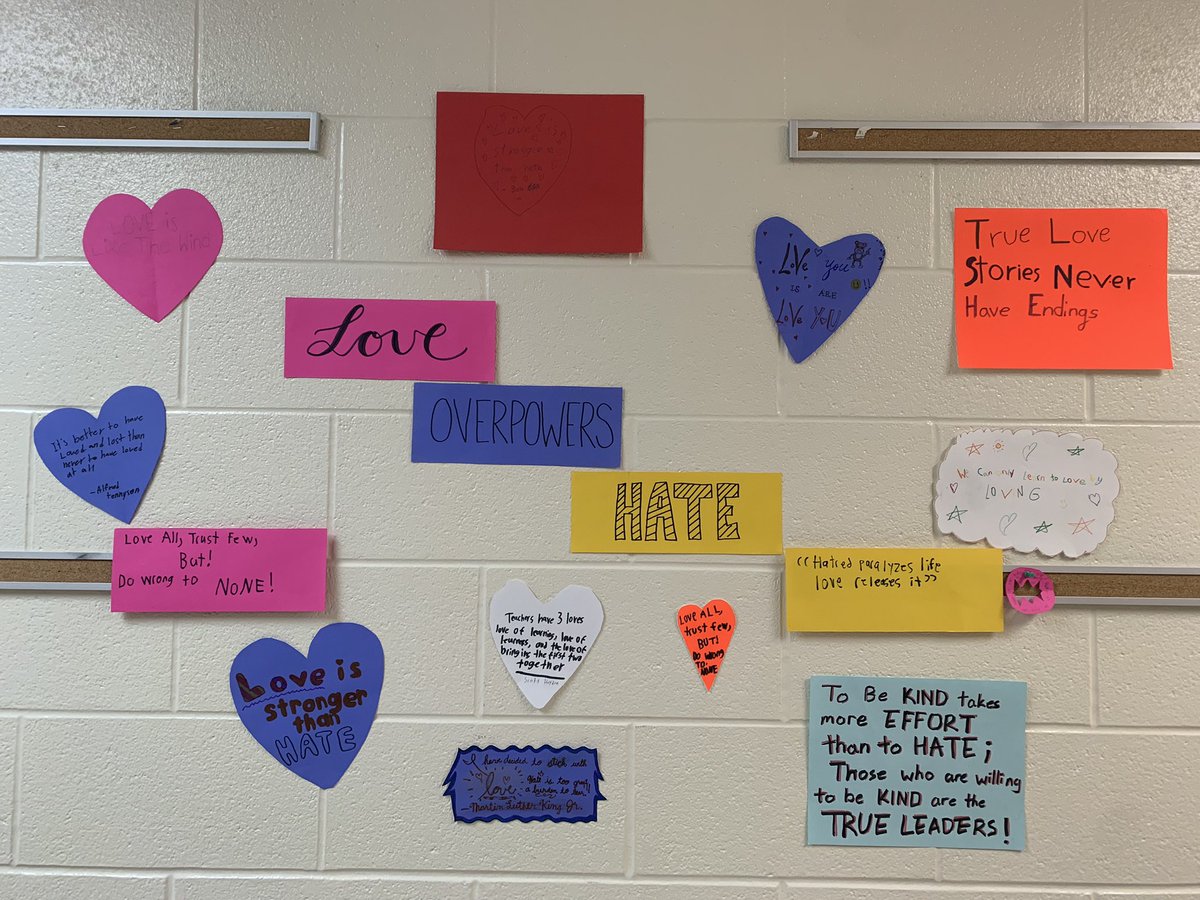 Love is
stronger
LOVE is
Like The Wind
LOVE You
IS ARE
LOVE YOU
!!
True Love
Stories Never
Have Endings
Love
OVERPOWERS
HATE
It's better to have
Loved and lost than
never to have loved
at all
-Alfred
tennyson
We Can only learn to Love by
LOVING
Love All, Trust Few,
But!
Do wrong to NONE!
"Hatred paralyzes life
love releases it"
Teachers have 3 loves
love of learning, love of
learners, and the love of
bringing the first two
together
LOVE ALL,
trust few,
BUT!
DO WRONG
TO
NONE
Love is
stronger
than
HATE
To Be KIND takes
more EFFORT
than to HATE;
Those who are willing
to be KIND are the
TRUE LEADERS!
I have decided to stick with
love Hate is too great
a burden to bear
-Martin Luther King Jr.